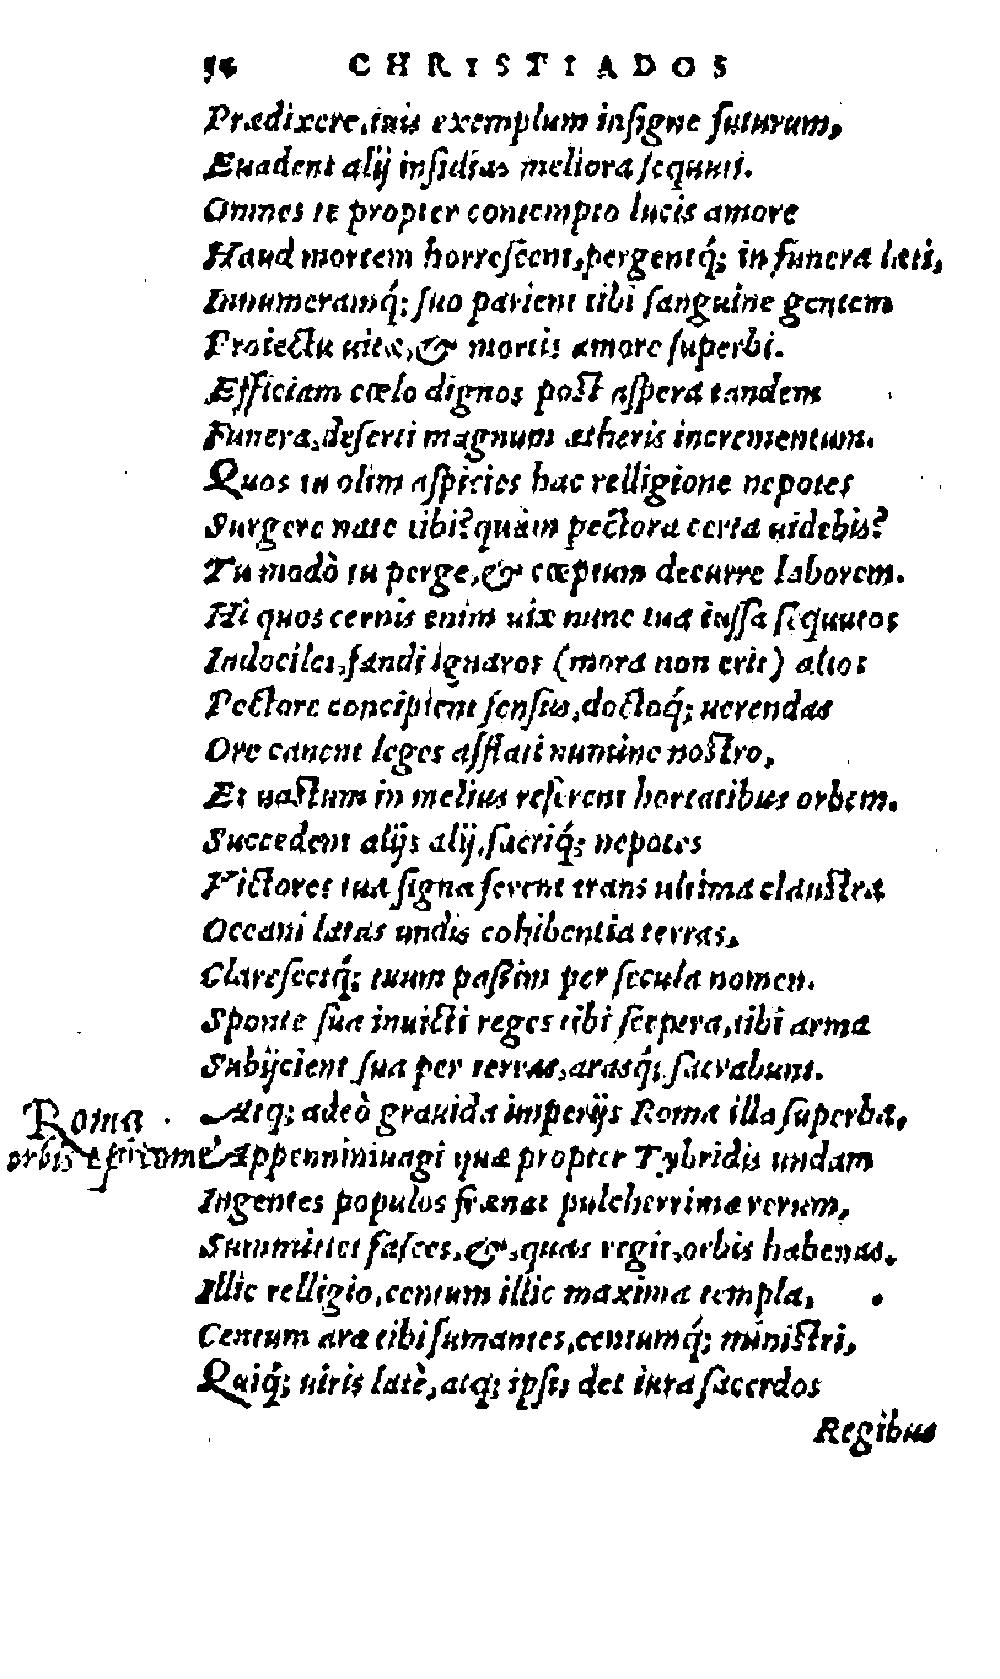 54 CHRISTIADOS
Prædixere, tuis exemplum insigne futurum,
Euadent alij insidias meliora sequuti.
Omnes te propter contempto lucis amore
Haud mortem horrescent, pergentq́; in funera læti,
Innumeramq́; suo parient tibi sanguine gentem
Proiectu uitæ, & mortis amore superbi.
Efficiam cœlo dignos post aspera tandem
Funera, deserti magnum ætheris incrementum.
Quos tu olim aspicies hac relligione nepotes
Surgere nate tibi? quàm pectora certa uidebis?
Tu modò tu perge, & cœptum decurre laborem.
Hi quos cernis enim uix nunc tua iussa sequutos
Indociles, fandi ignaros (mora non erit) altos
Pectore concipient sensus, doctoq́; uerendas
Ore canent leges afflati numine nostro,
Et uastum in melius referent hortatibus orbem.
Succedent alijs alij, sacriq́; nepotes
Victores tua signa ferent trans ultima claustra
Oceani latas undis cohibentia terras,
Clarescetq́; tuum passim per secula nomen.
Sponte sua inuicti reges tibi sceptra, tibi arma
Subijcient sua per terras, arasq́; sacrabunt.
Roma
orbis epitome
Atq; adeò grauida imperijs Roma illa superba,
Appenniniuagi quæ propter Tybridis undam
Ingentes populos frænat pulcherrima rerum,
Summittet fasces, &, quas regit, orbis habenas.
Illic relligio, centum illic maxima templa,
Centum aræ tibi fumantes, centumq́; ministri,
Quiq́; uiris latè, atq; ipsis det iura sacerdos
Regibus